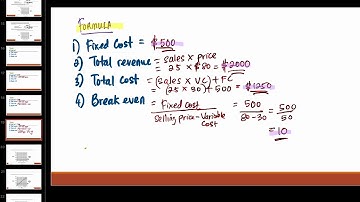 FORMULA
1) Fixed Cost = $500
2) Total revenue = sales x price
= 25 x $80 = $2000
3) Total cost = (sales x VC) + FC
= (25 x 30) + 500 = $1250
4) Break even = Fixed cost / Selling price - Variable cost = 500 / 80 - 30 = 500 / 50
= 10